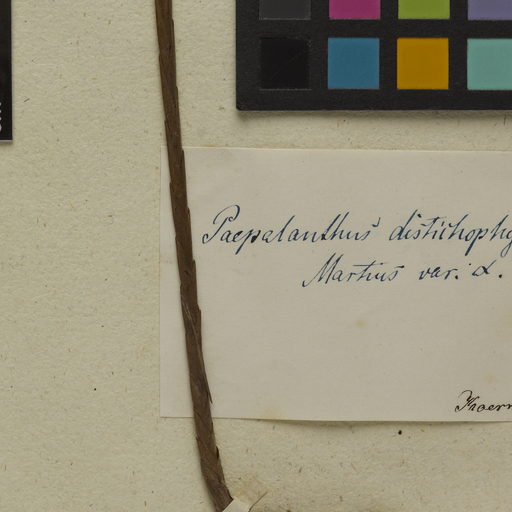 Paepalanthus distichophy
Martius var. α.
Koern